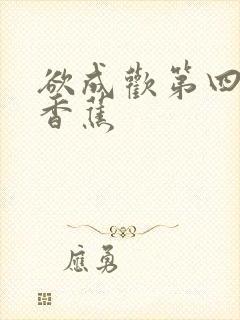 欲成歡第四
香蕉
應勇